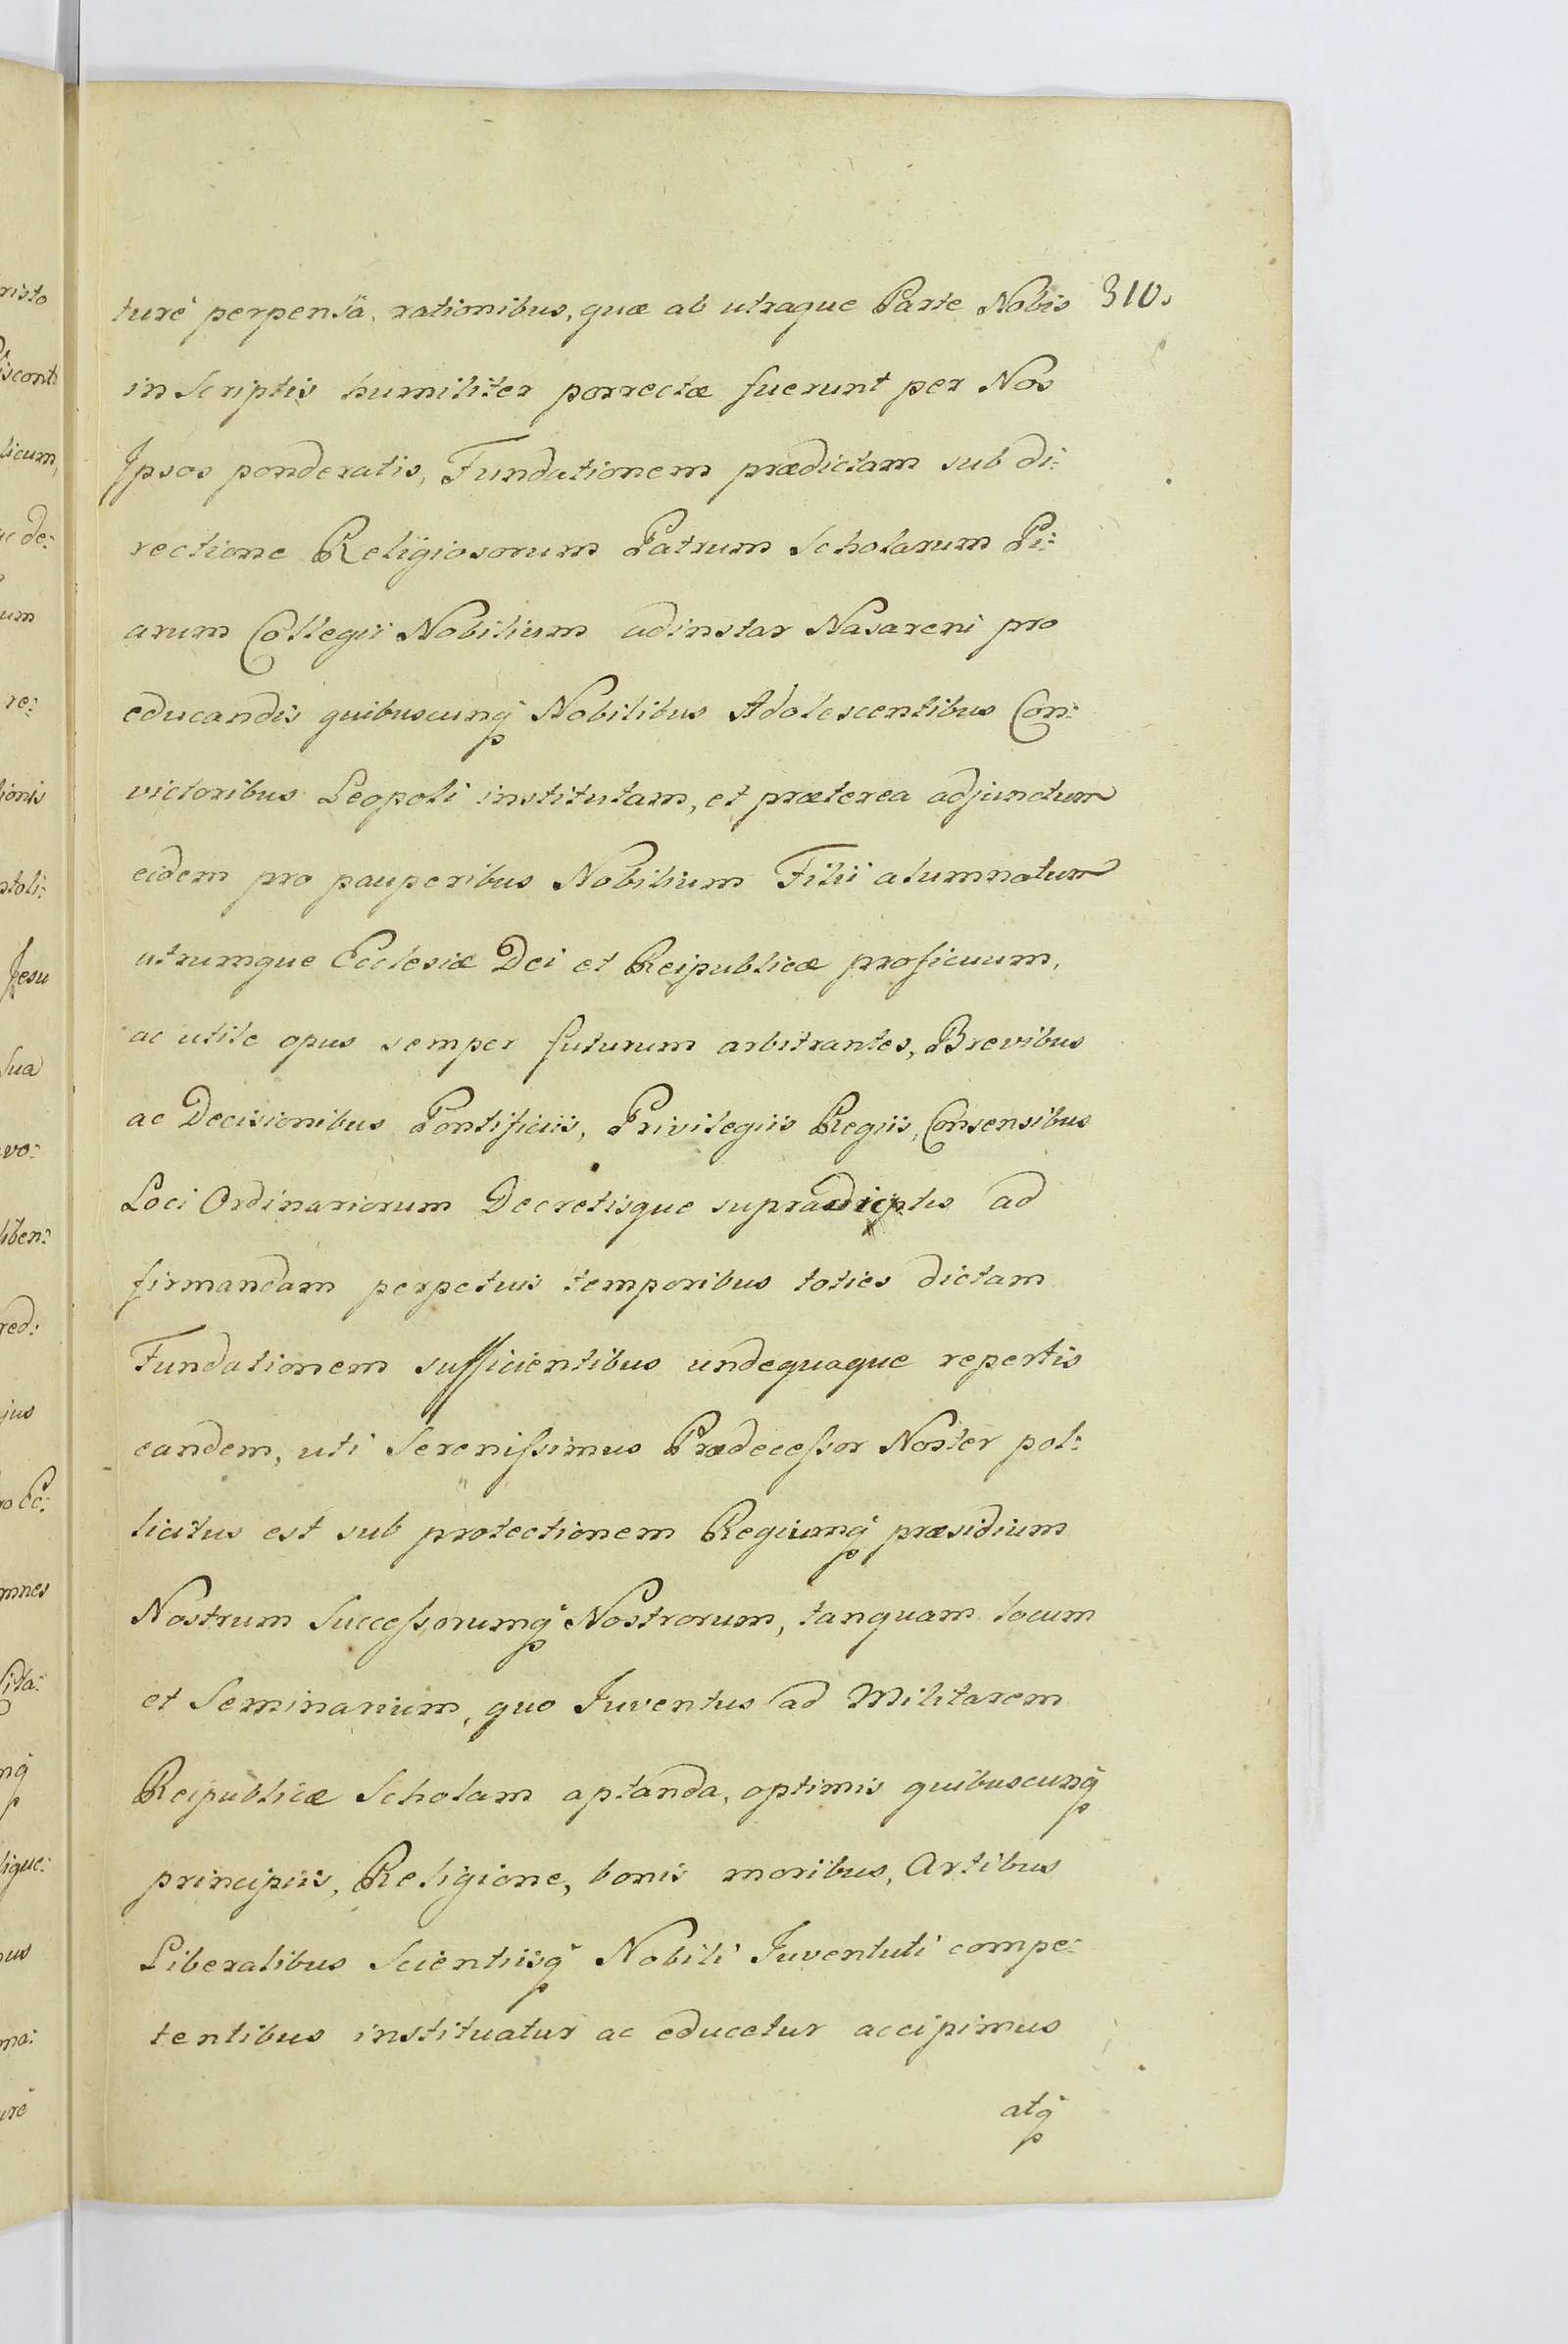 turé perpensâ, rationibus, quæ ab utraque Parte Nobis 310.
in Scriptis humiliter porrectæ fuerunt per Nos
Ipsos ponderatis, Fundationem prædictam sub di:
rectione Religiosorum Patrum Scholarum Pi:
arum Collegii Nobilium adinstar Nasareni pro
educandis quibuscunq̃ Nobilibus Adolescentibus Con:
victoribus Leopoli institutam, et præterea adjunctum
eidem pro pauperibus Nobilium Filii alumnatum
utrumque Ecclesiæ Dei et Reipublicæ proficuum,
ac utile opus semper futurum arbitrantes, Brevibus
ac Decisionibus Pontificiis, Privilegiis Regiis, Consensibus
Loci Ordinariorum Decretisque supradictis ad
firmandam perpetuis temporibus toties dictam
Fundationem sufficientibus undequaque repertis
eandem, uti Serenissimus Prædecessor Noster pol:
licitus est sub protectionem Regiumq̃ præsidium
Nostrum Successorumq̃ Nostrorum, tanquam locum
et Seminarium, quo Juventus ad Militarem
Reipublicæ Scholam aptanda, optimis quibuscunq̃
principiis, Religione, bonis moribus, Artibus
Liberalibus Scientiisq̃ Nobili Juventuti compe:
tentibus instituatur ac educetur accipimus
atq̃
risto
isconti
licum,
ac de:
um
re:
tionis
stoli:
Jesu
Sua
vo:
liben:
red:
jus
ro Ec:
mnes
nq̃
lique:
ma:
uré